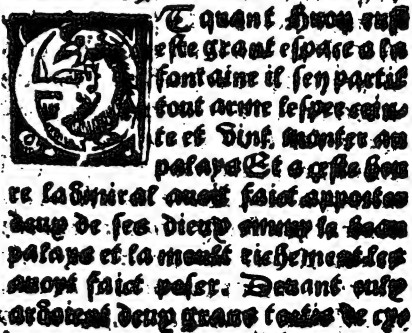 ET quant Huon eust
este grant espace a la
fontaine il sen partit
tout arme lespee cein-
te et vint monter au
palays Et a ceste heu
re ladmiral auoit faict apporter
deux de ses dieux emmy le beau
palays et la moult richement les
auoyt faict poser. Deuant eulx
ardoient deux grans tortis de cyre